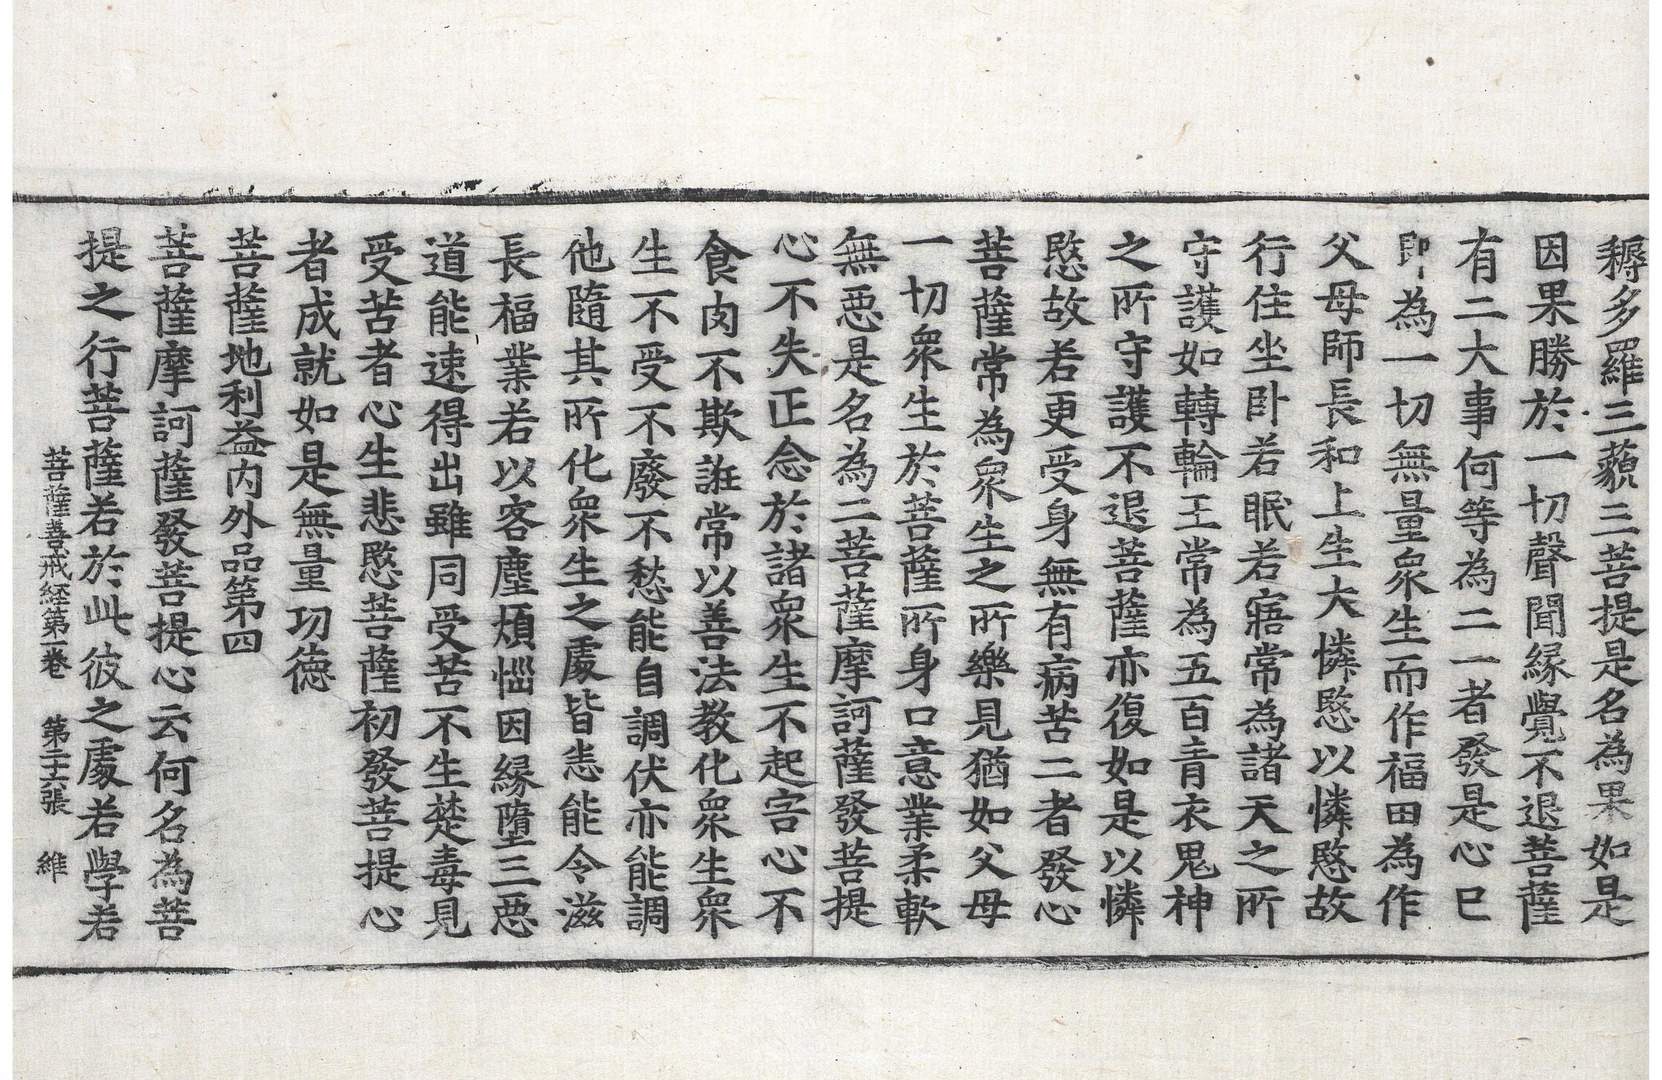 耨多羅三藐三菩提是名為果如是
因果勝於一切聲聞緣覺不退菩薩
有二大事何等為二一者發是心已
即為一切無量衆生而作福田為作
父母師長和上生大憐愍以憐愍故
行住坐卧若眠若寤常為諸天之所
守護如轉輪王常為五百青衣鬼神
之所守護不退菩薩亦復如是以憐
愍故若更受身無有病苦二者發心
菩薩常為衆生之所樂見猶如父母
一切衆生於菩薩所身口意業柔軟
無惡是名為二菩薩摩訶薩發菩提
心不失正念於諸衆生不起害心不
食肉不欺誑常以善法教化衆生衆
生不受不廢不愁能自調伏亦能調
他隨其所化衆生之處皆悉能令滋
長福業若以客塵煩惱因緣墮三惡
道能速得出雖同受苦不生楚毒見
受苦者心生悲愍菩薩初發菩提心
者成就如是無量功德
菩薩地利益內外品第四
菩薩摩訶薩發菩提心云何名為菩
提之行菩薩若於此彼之處若學者
菩薩善戒経第一卷　第二十六張　維